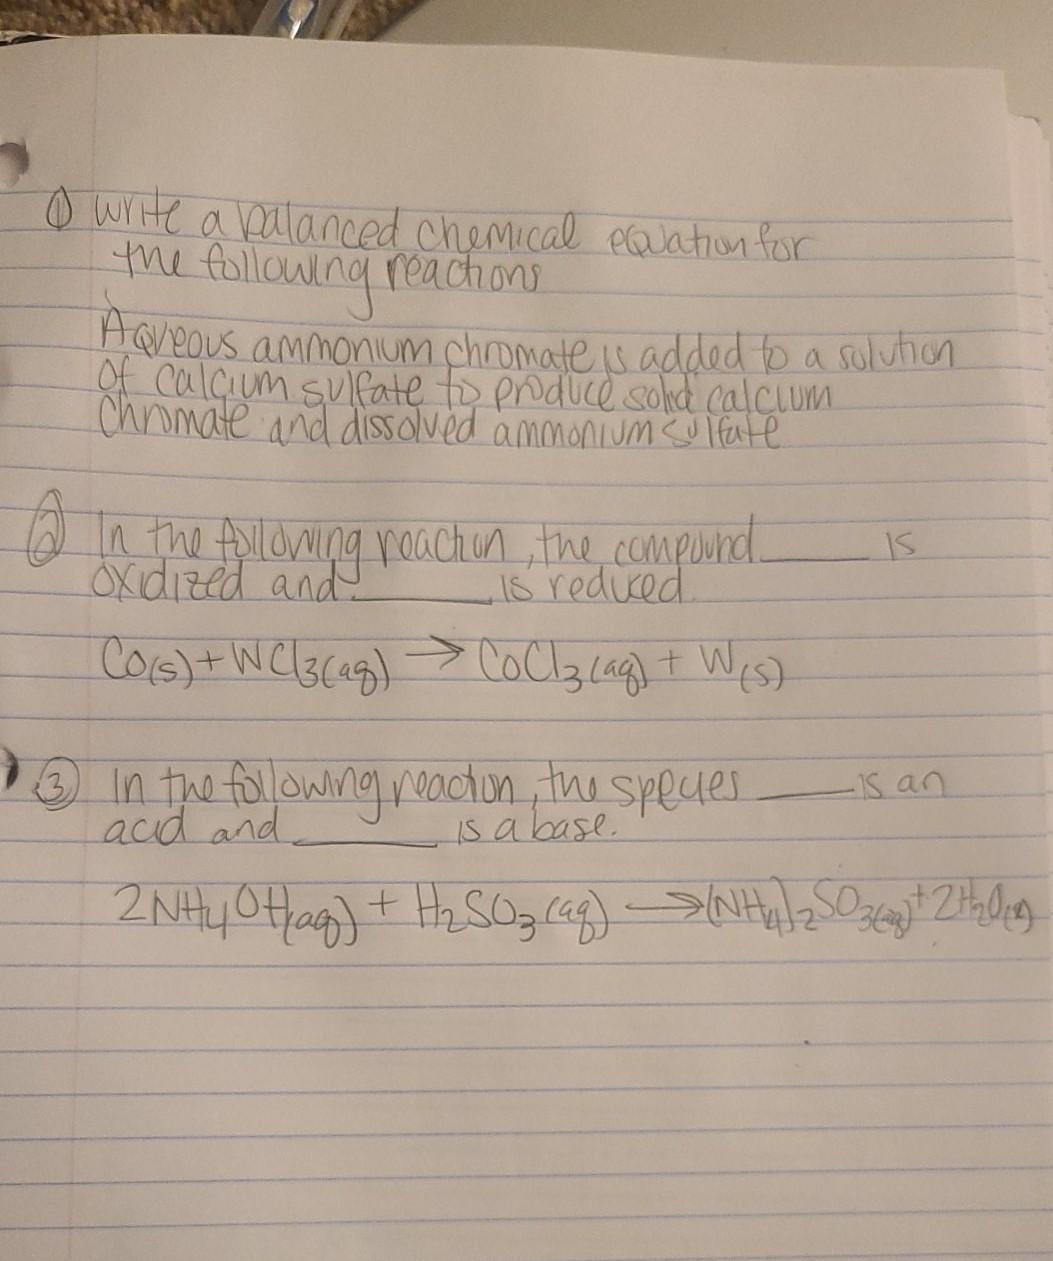 ① Write a balanced chemical equation for
the following reactions
Aqueous ammonium chromate is added to a solution
of calcium sulfate to produce solid calcium
chromate and dissolved ammonium sulfate
② In the following reaction, the compound ______ is
oxidized and ______ is reduced.
Co(s) + WCl₃(aq) → CoCl₃(aq) + W(s)
③ In the following reaction, the species ______ is an
acid and ______ is a base.
2NH₄OH(aq) + H₂SO₃(aq) → (NH₄)₂SO₃(aq) + 2H₂O(l)